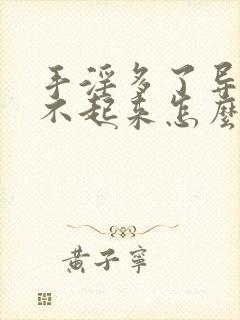 手淫多了导
不起来怎麽
黄子宁